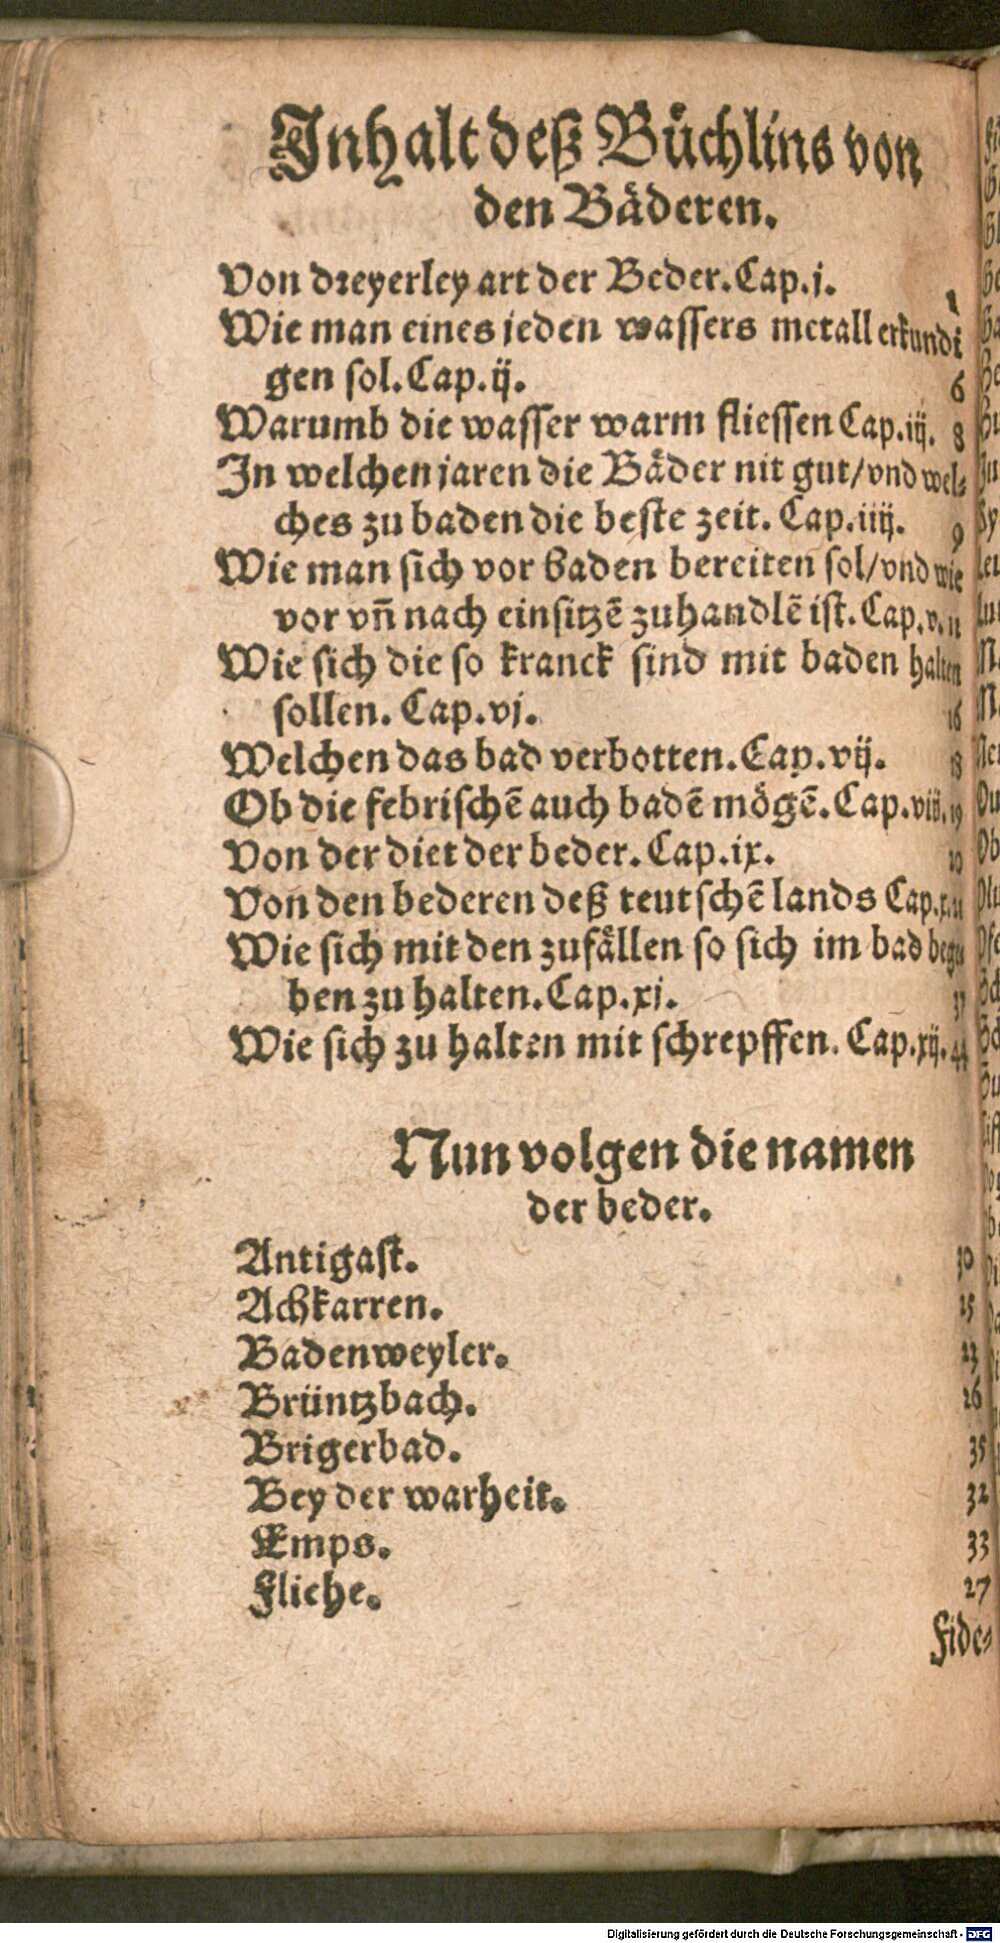 Inhalt deß Büchlins von
den Bäderen.
Von dreyerley art der Beder. Cap. j. 1
Wie man eines jeden wassers metall erkundi
gen sol. Cap. ij. 6
Warumb die wasser warm fliessen Cap. iij. 8
In welchen jaren die Bäder nit gut/vnd wel⸗
ches zu baden die beste zeit. Cap. iiij. 9
Wie man sich vor baden bereiten sol/vnd wie
vor vñ nach einsitzē zuhandlē ist. Cap. v. 11
Wie sich die so kranck sind mit baden halten
sollen. Cap. vj. 16
Welchen das bad verbotten. Cap. vij. 18
Ob die febrischē auch badē mögē. Cap. viij. 19
Von der diet der beder. Cap. ix.
Von den bederen deß teutschē lands Cap. x.
Wie sich mit den zufällen so sich im bad
ben zu halten. Cap. xi. 37
Wie sich zu halten mit schrepffen. Cap. xij. 44
Nun volgen die namen
der beder.
Antigast. 30
Achkarren. 25
Badenweyler. 23
Brüntzbach. 26
Brigerbad. 35
Bey der warheit. 32
Emps. 33
Fliche. 27
Fide⸗
Digitalisierung gefördert durch die Deutsche Forschungsgemeinschaft - DFG